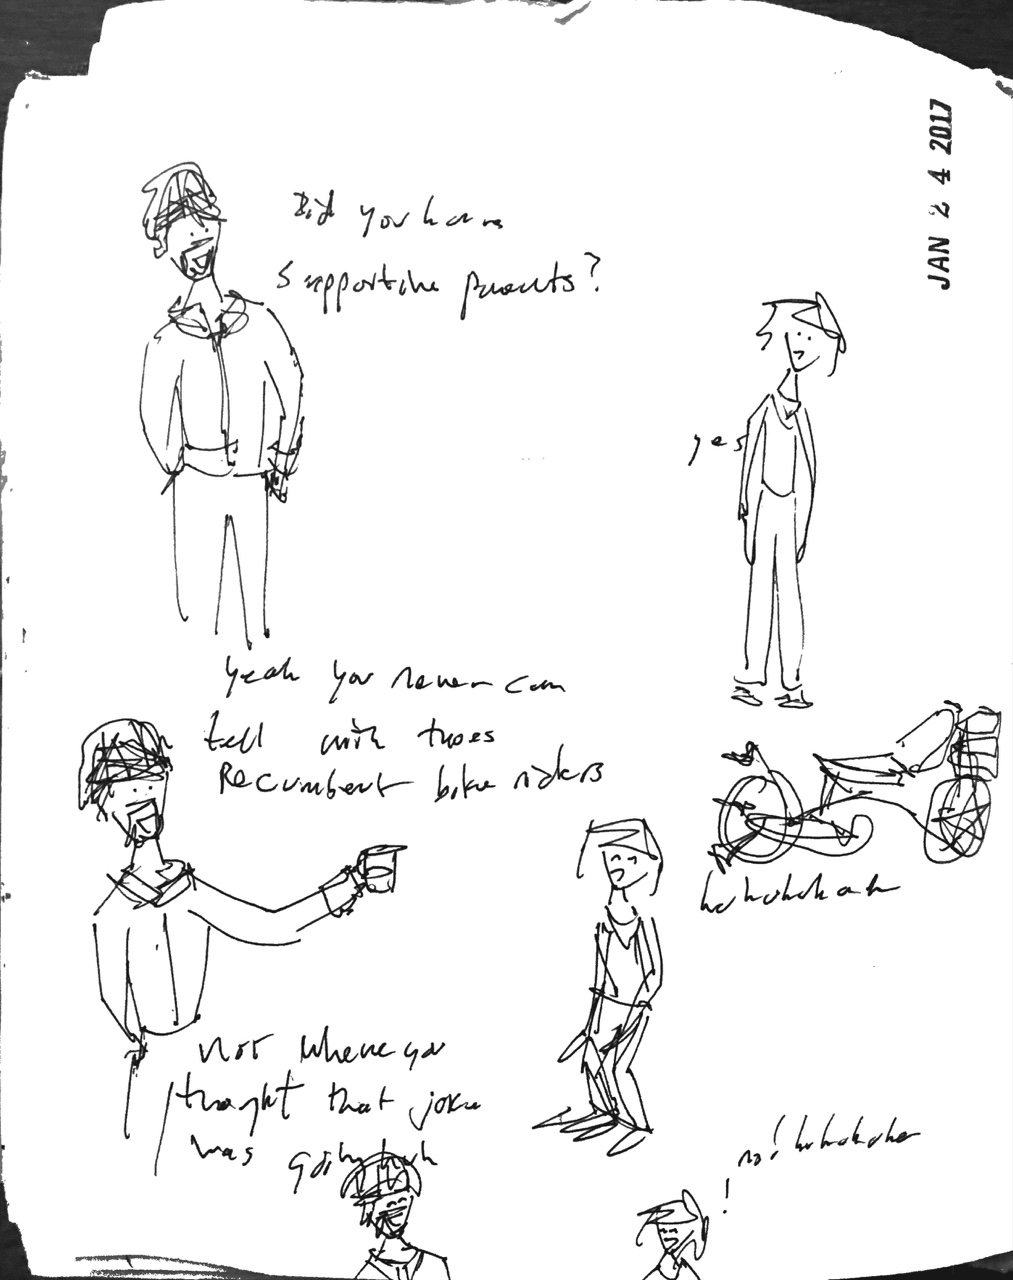 JAN 24 2017
Did you have
supportive parents?
yes
yeah you never can
tell with thoes
Recumbent bike riders
hahahahah
not where you
thought that joke
was going huh
no! hahahaha
!